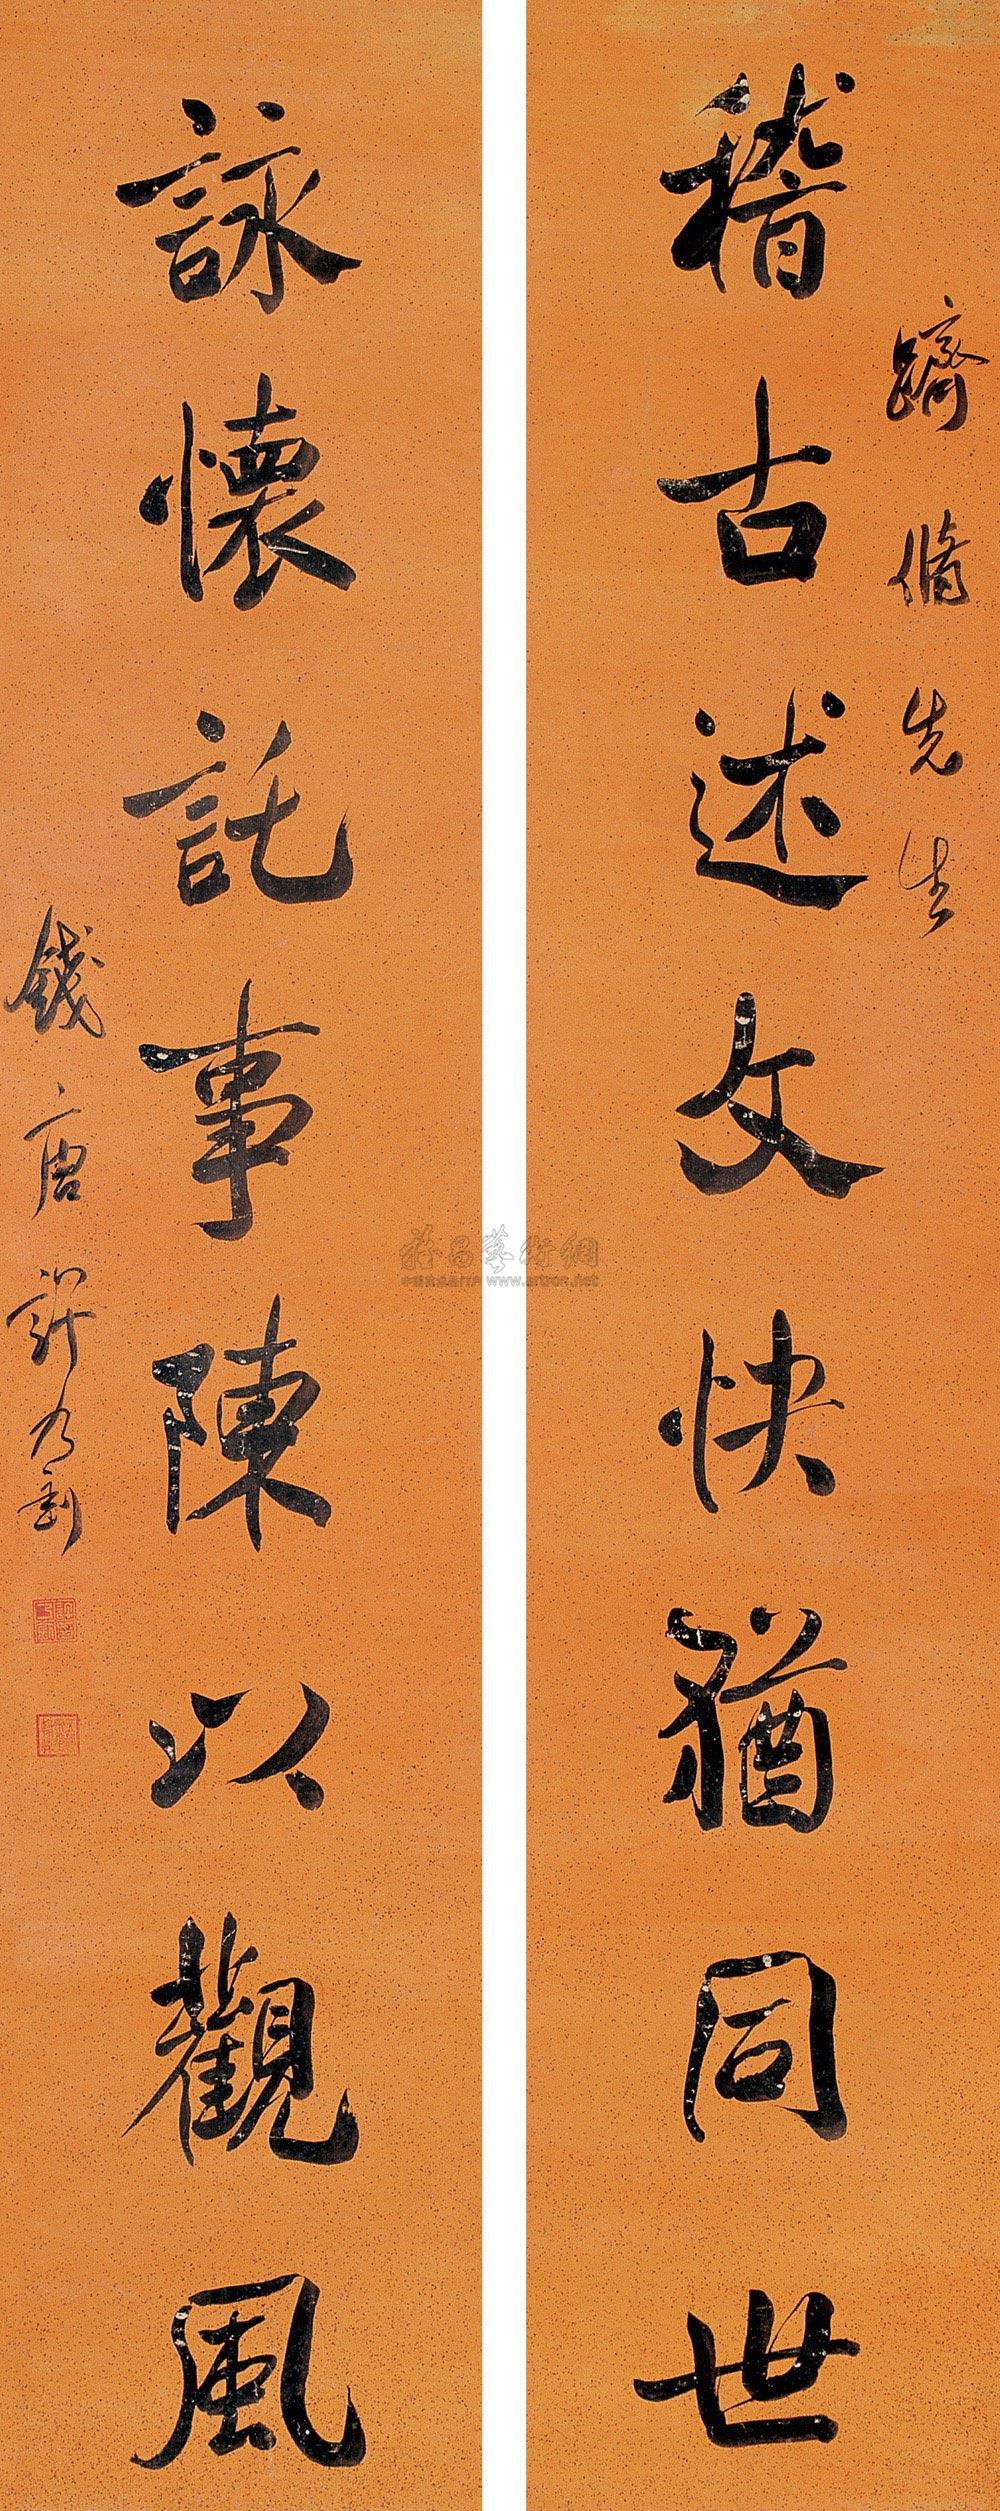 躋脩先生
稽古述文快猶同世
詠懷託事陳以觀風
錢唐許乃釗
雅昌藝術網
www.artron.net